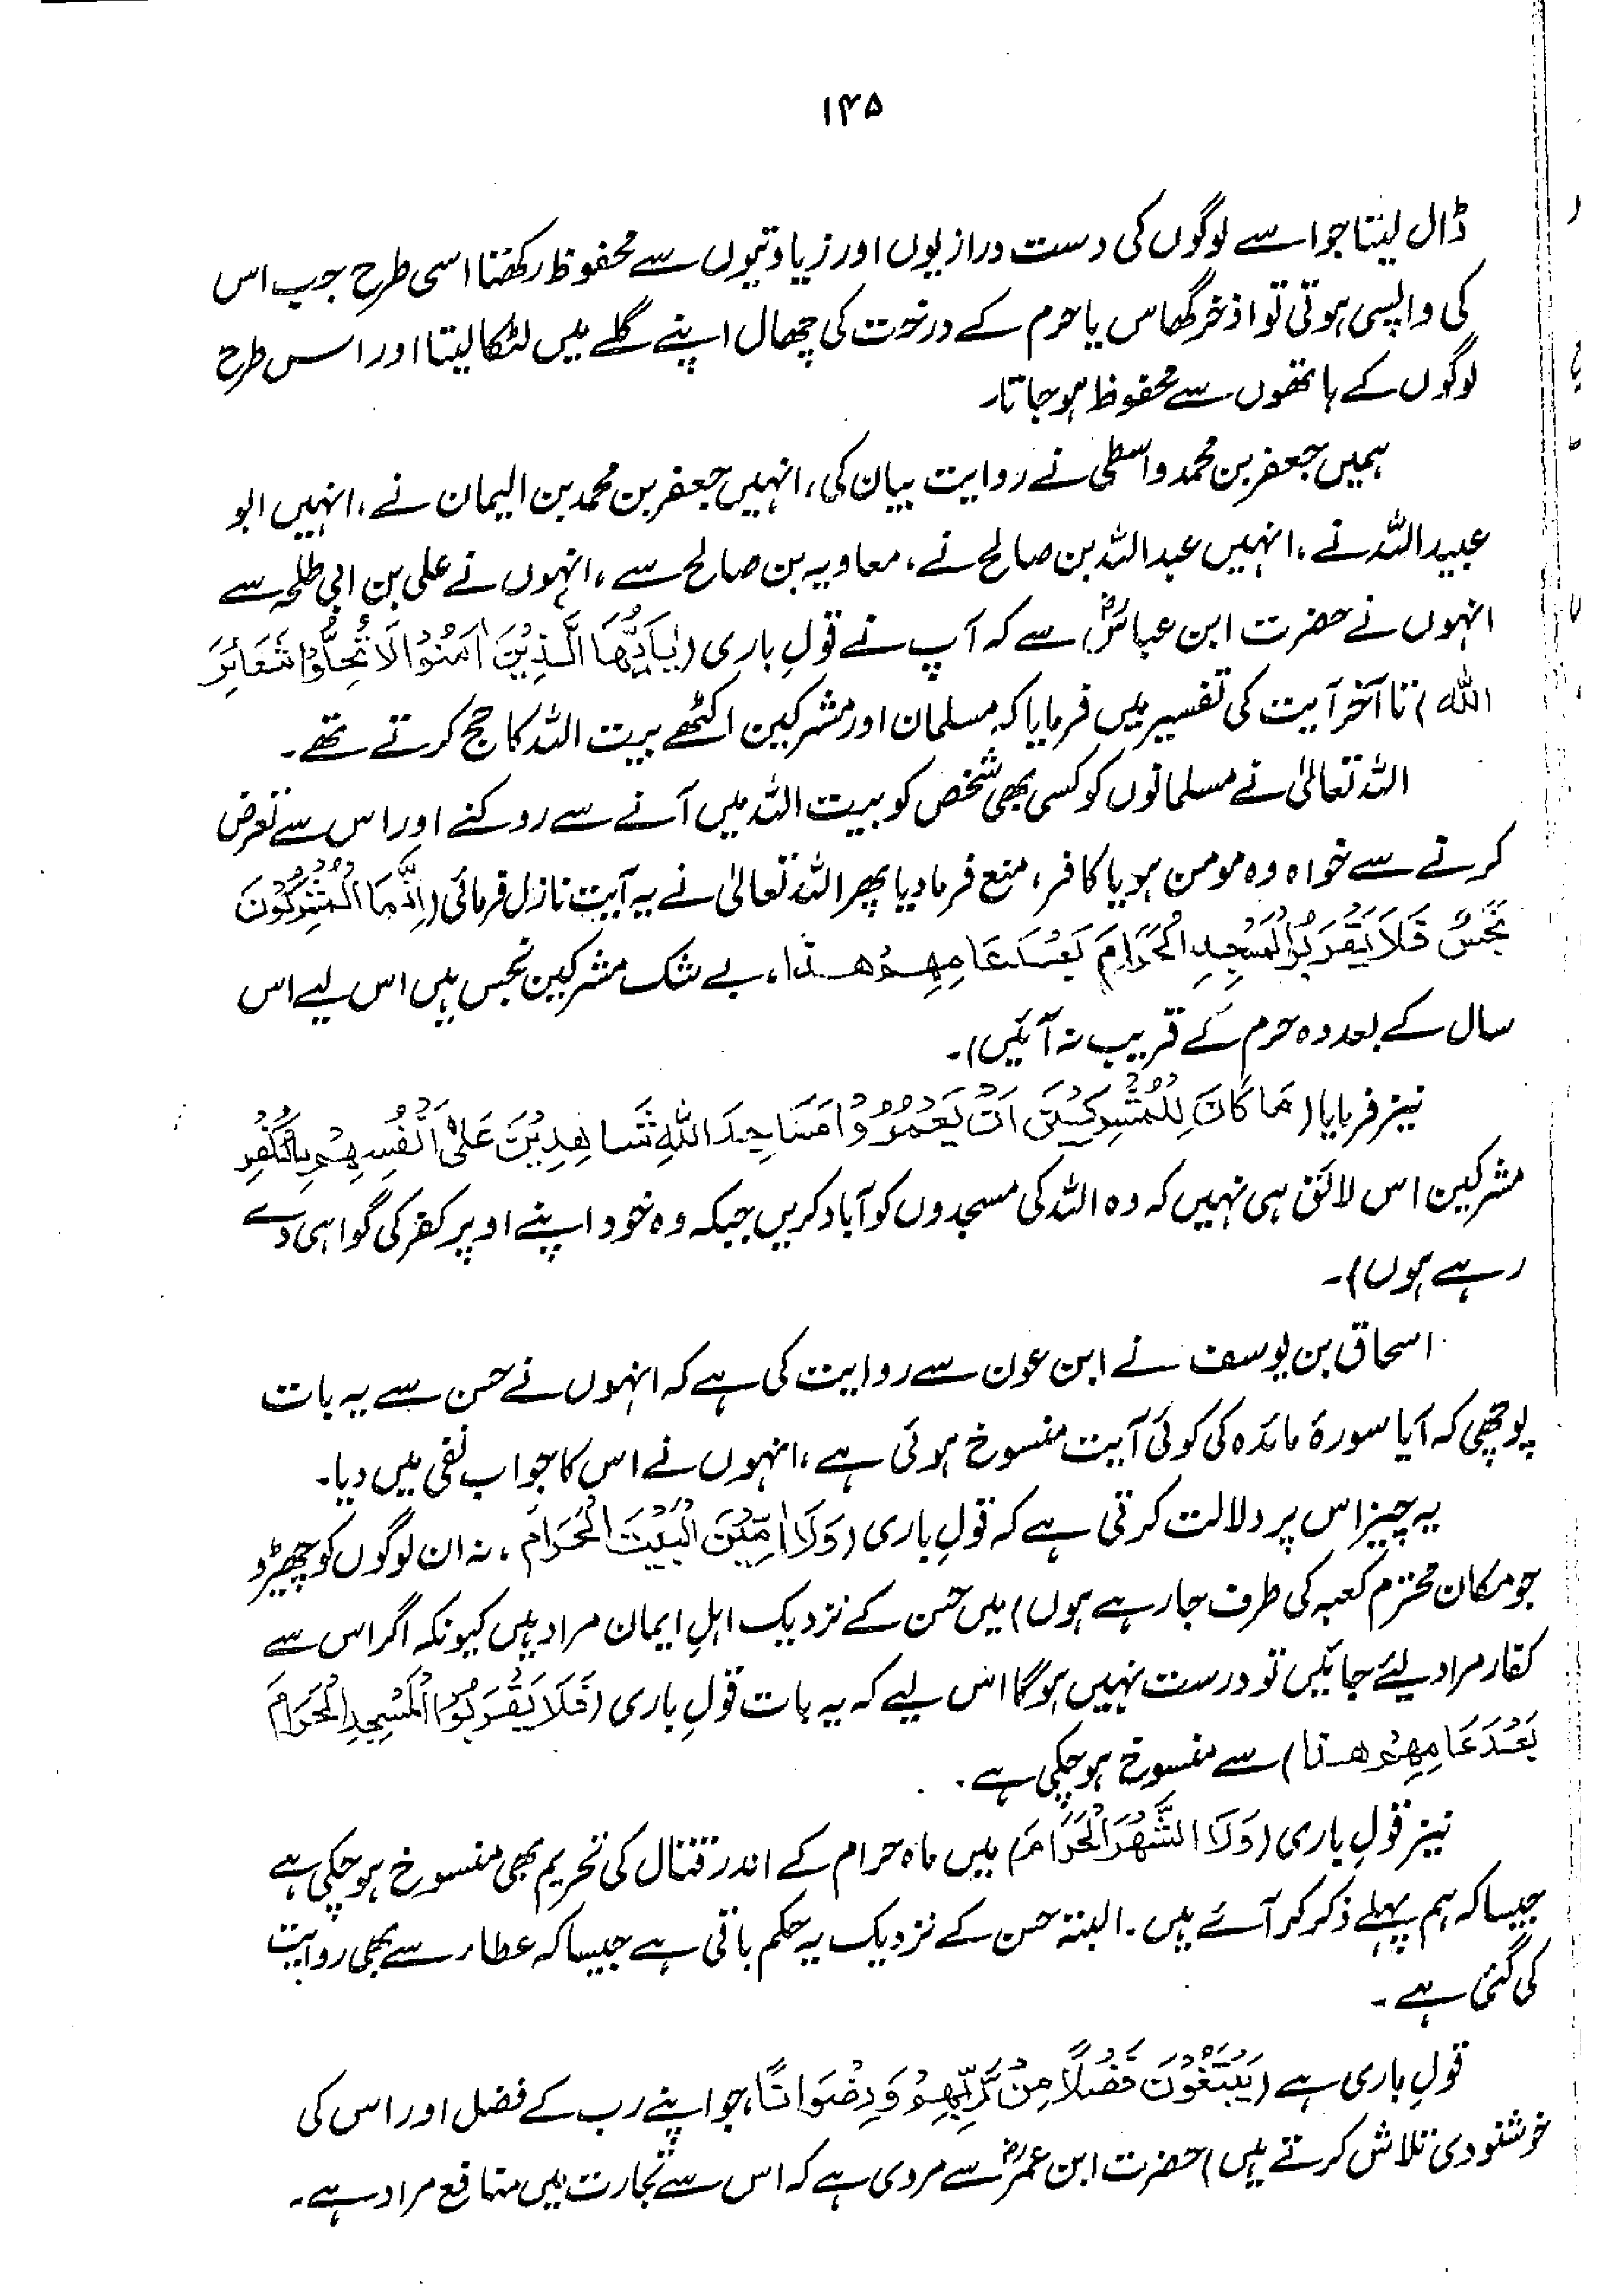 ۱۴۵
ڈال لیتا جو اسے لوگوں کی دست درازیوں اور زیادتیوں سے محفوظ رکھتا اسی طرح جب اس
کی واپسی ہوتی تو اذخر گھاس یا حرم کے درخت کی چھال اپنے گلے میں لٹکا لیتا اور اس طرح
لوگوں کے ہاتھوں سے محفوظ ہو جاتا۔
ہمیں جعفر بن محمد واسطی نے روایت بیان کی، انہیں جعفر بن محمد بن الیمان نے، انہیں ابو
عبید اللہ نے، انہیں عبداللہ بن صالح نے، معاویہ بن صالح سے، انہوں نے علی بن ابی طلحہ سے
انہوں نے حضرت ابن عباسؓ سے کہ آپ نے قولِ باری (يٰاَيُّهَا الَّذِيْنَ اٰمَنُوْا لَا تُحِلُّوْا شَعَائِرَ
اللهِ) تا آخر آیت کی تفسیر میں فرمایا کہ مسلمان اور مشرکین اکٹھے بیت اللہ کا حج کرتے تھے۔
اللہ تعالیٰ نے مسلمانوں کو کسی بھی شخص کو بیت اللہ میں آنے سے روکنے اور اس سے تعرض
کرنے سے خواہ وہ مومن ہو یا کافر، منع فرما دیا پھر اللہ تعالیٰ نے یہ آیت نازل فرمائی (اِنَّمَا الْمُشْرِكُوْنَ
نَجَسٌ فَلَا يَقْرَبُوا الْمَسْجِدِ الْحَرَامَ بَعْدَ عَامِهِمْ هٰذَا، بے شک مشرکین نجس ہیں اس لیے اس
سال کے بعد وہ حرم کے قریب نہ آئیں)۔
نیز فرمایا (مَا كَانَ لِلْمُشْرِكِيْنَ اَنْ يَعْمُرُوْا مَسَاجِدَ اللهِ شَاهِدِيْنَ عَلٰى اَنْفُسِهِمْ بِالْكُفْرِ
مشرکین اس لائق ہی نہیں کہ وہ اللہ کی مسجدوں کو آباد کریں جبکہ وہ خود اپنے اوپر کفر کی گواہی دے
رہے ہوں)۔
اسحاق بن یوسف نے ابن عون سے روایت کی ہے کہ انہوں نے حسن سے یہ بات
پوچھی کہ آیا سورۂ مائدہ کی کوئی آیت منسوخ ہوئی ہے، انہوں نے اس کا جواب نفی میں دیا۔
یہ چیز اس پر دلالت کرتی ہے کہ قولِ باری (وَلَا اٰمِّيْنَ الْبَيْتَ الْحَرَامَ، نہ ان لوگوں کو چھیڑو
جو مکان محترم کعبہ کی طرف جا رہے ہوں) میں حسن کے نزدیک اہلِ ایمان مراد ہیں کیونکہ اگر اس سے
کفار مراد لیئے جائیں تو درست نہیں ہو گا اس لیے کہ یہ بات قولِ باری (فَلَا يَقْرَبُوا الْمَسْجِدِ الْحَرَامَ
بَعْدَ عَامِهِمْ هٰذَا) سے منسوخ ہو چکی ہے۔
نیز قولِ باری (وَلَا الشَّهْرَ الْحَرَامَ) میں ماہ حرام کے اندر قتال کی تحریم بھی منسوخ ہو چکی ہے
جیسا کہ ہم پہلے ذکر کر آئے ہیں۔ البتہ حسن کے نزدیک یہ حکم باقی ہے جیسا کہ عطاء سے بھی روایت
کی گئی ہے۔
قولِ باری ہے (يَبْتَغُوْنَ فَضْلًا مِنْ رَّبِّهِمْ وَرِضْوَانًا، جو اپنے رب کے فضل اور اس کی
خوشنودی تلاش کرتے ہیں) حضرت ابن عمرؓ سے مروی ہے کہ اس سے تجارت میں منافع مراد ہے۔